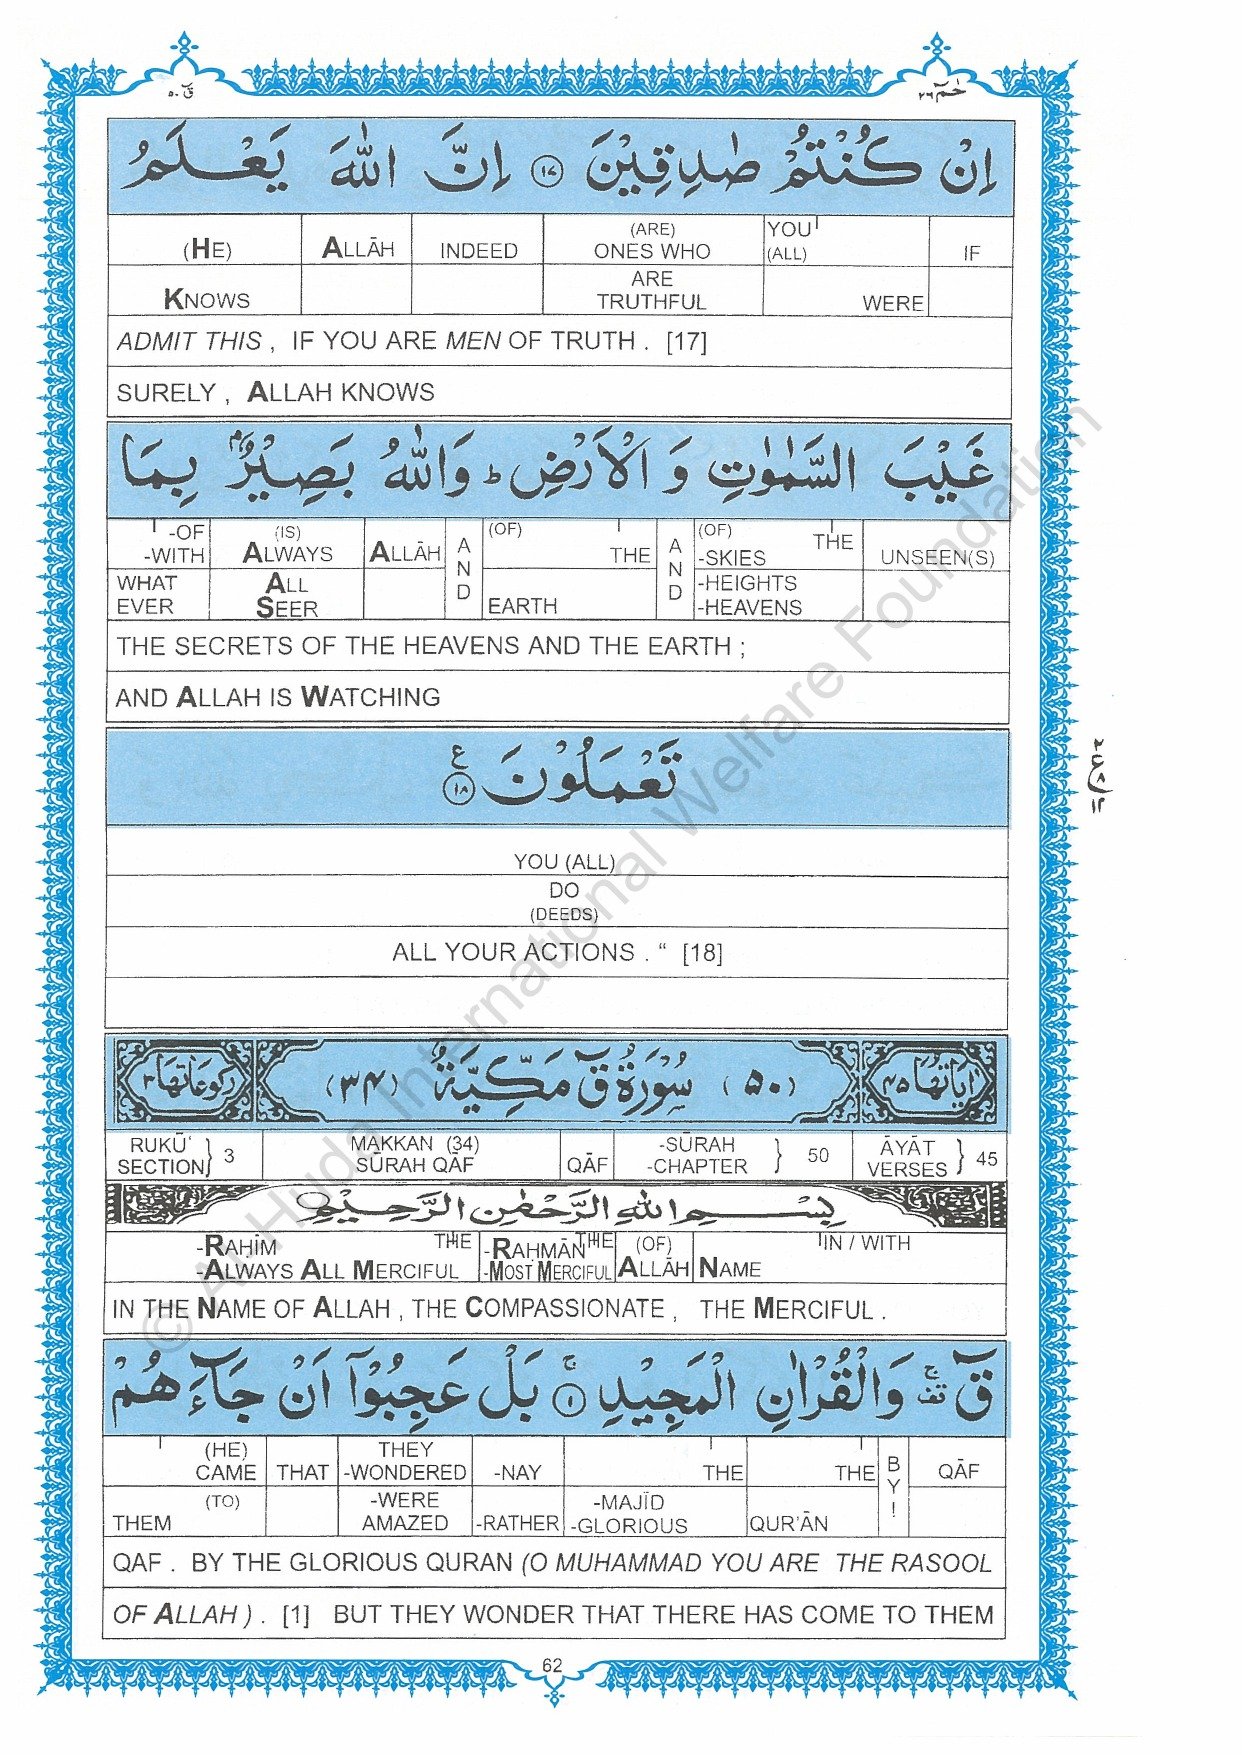 قٓ ٥٠
حٰمٓ ٢٦
اِنْ كُنْتُمْ صٰدِقِيْنَ ۝١٧ اِنَّ اللّٰهَ يَعْلَمُ
(HE) ALLĀH INDEED (ARE) ONES WHO YOU (ALL) IF
KNOWS ARE TRUTHFUL WERE
ADMIT THIS , IF YOU ARE MEN OF TRUTH . [17]
SURELY , ALLAH KNOWS
غَيْبَ السَّمٰوٰتِ وَ الْاَرْضِ ؕ وَاللّٰهُ بَصِيْرٌۢ بِمَا
-OF -WITH (IS) ALWAYS ALLĀH AND (OF) THE AND (OF) THE -SKIES UNSEEN(S)
WHAT EVER ALL SEER EARTH -HEIGHTS -HEAVENS
THE SECRETS OF THE HEAVENS AND THE EARTH ;
AND ALLAH IS WATCHING
تَعْمَلُوْنَ ۝١٨ ع
YOU (ALL)
DO
(DEEDS)
ALL YOUR ACTIONS . “ [18]
٢
ع ٨
١٢
اٰيَاتُهَا ٤٥ (٥٠) سُوْرَةُ قٓ مَكِّيَّةٌ (٣٤) رُكُوْعَاتُهَا ٣
RUKŪ‘ SECTION} 3 MAKKAN (34) SŪRAH QĀF QĀF -SŪRAH -CHAPTER } 50 ĀYĀT VERSES } 45
بِسْمِ اللّٰهِ الرَّحْمٰنِ الرَّحِيْمِ
-RAHĪM THE -RAHMĀN THE (OF) IN / WITH
-ALWAYS ALL MERCIFUL -MOST MERCIFUL ALLĀH NAME
IN THE NAME OF ALLAH , THE COMPASSIONATE , THE MERCIFUL .
قٓ ۚ وَالْقُرْاٰنِ الْمَجِيْدِ ۝١ۚ بَلْ عَجِبُوْٓا اَنْ جَآءَهُمْ
(HE) CAME THAT THEY -WONDERED -NAY THE THE BY! QĀF
(TO) THEM -WERE AMAZED -RATHER -MAJĪD -GLORIOUS QUR’ĀN
QAF . BY THE GLORIOUS QURAN (O MUHAMMAD YOU ARE THE RASOOL
OF ALLAH ) . [1] BUT THEY WONDER THAT THERE HAS COME TO THEM
62
© Al-Huda International Welfare Foundation